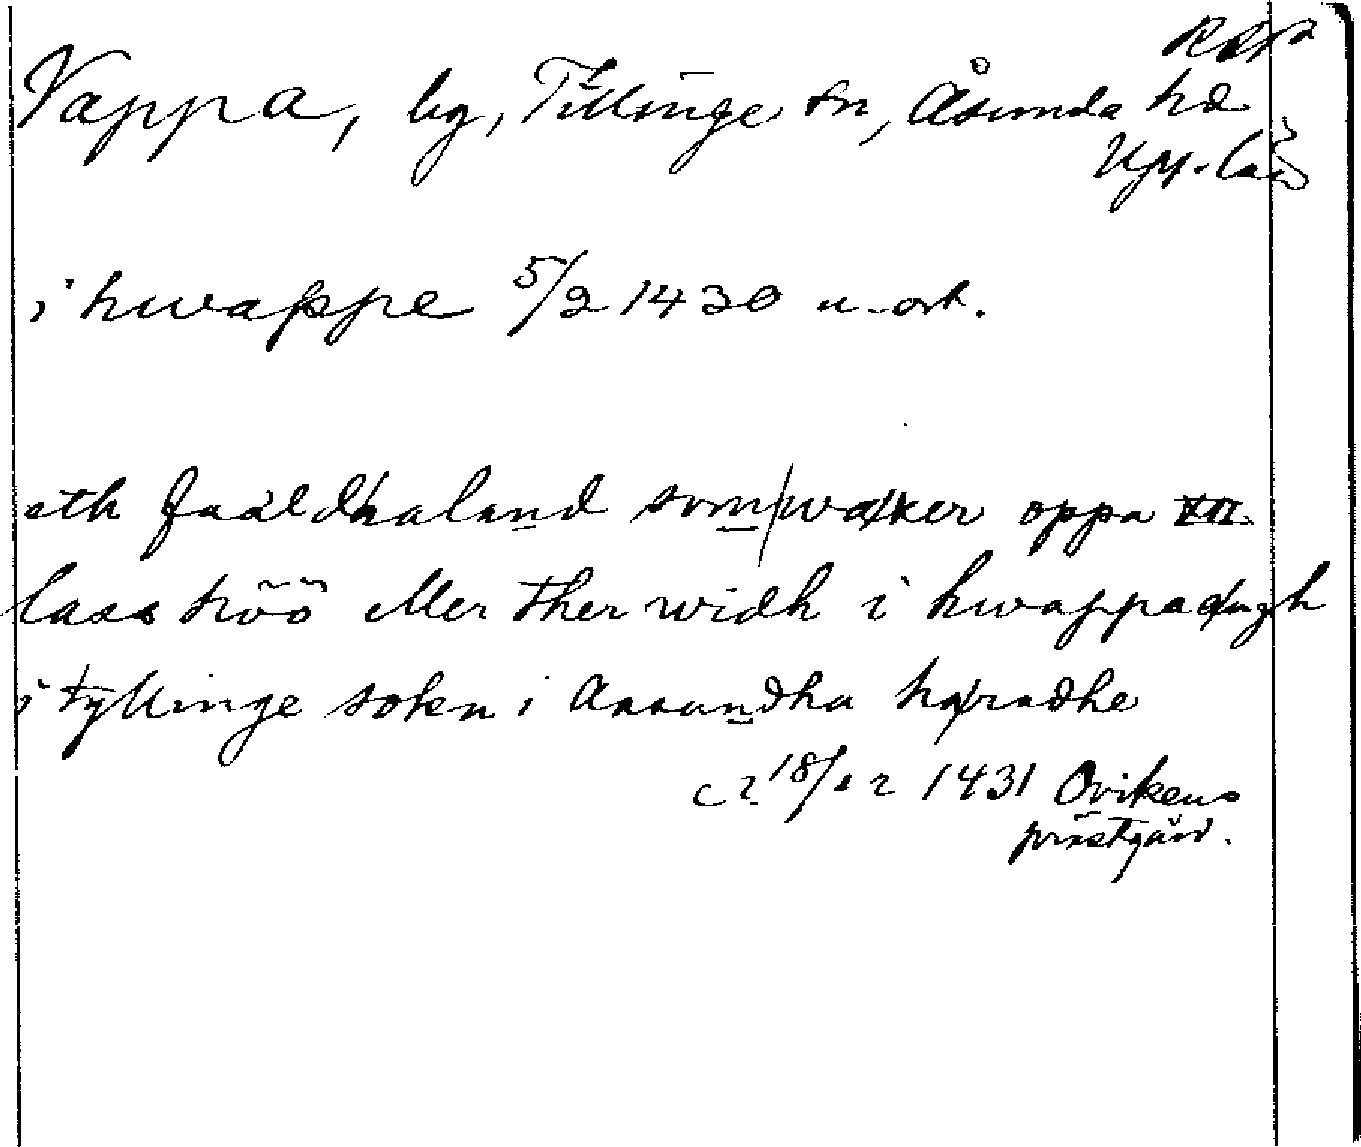 RAP
Vappa, by, Tillinge sn, Åsunda hd
Upp. län
i hwappe 5/2 1430 u. ort.
eth faäldhaland som waxer oppa XII
lass höö eller ther widh i hwappaængh
i tyllinge sokn i Aasundha hæradhe
18/12 1431 Ovikens
prästgård.